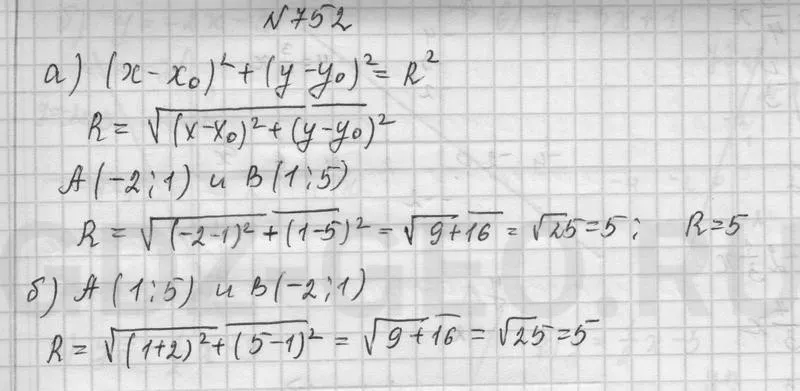 №752
а) (x-x₀)²+(y-y₀)²=R²
R=√(x-x₀)²+(y-y₀)²
A(-2;1) и B(1;5)
R=√(-2-1)²+(1-5)²=√9+16=√25=5; R=5
б) A(1;5) и B(-2;1)
R=√(1+2)²+(5-1)²=√9+16=√25=5